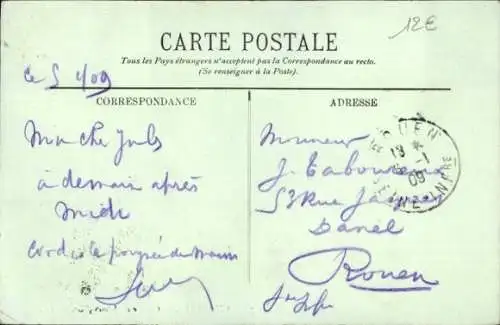 12€
CARTE POSTALE
Tous les Pays étrangers n'acceptent pas la Correspondance au recto.
(Se renseigner à la Poste).
ce 5 1/09
CORRESPONDANCE
ADRESSE
Mon cher Jules
à demain après
midi
cordiale poignée de mains
Monsieur
J. Tabouret
53 Rue Jacques
Danel
Rouen
ROUEN
SEINE INFRE
09